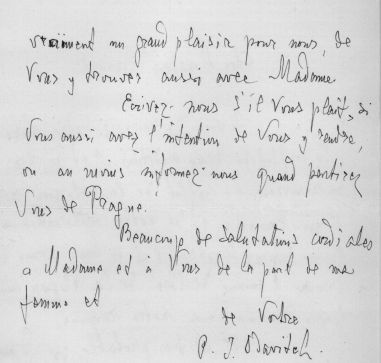 vraiment un grand plaisir pour nous, de
Vous y trouver aussi avec Madame.
Ecrivez-nous s'il Vous plaît, si
Vous aussi avez l'intention de Vous y rendre,
ou au moins informez-nous quand partirez
Vous de Prague.
Beaucoup de salutations cordiales
a Madame et à Vous de la part de ma
femme et
de Votre
P. J.